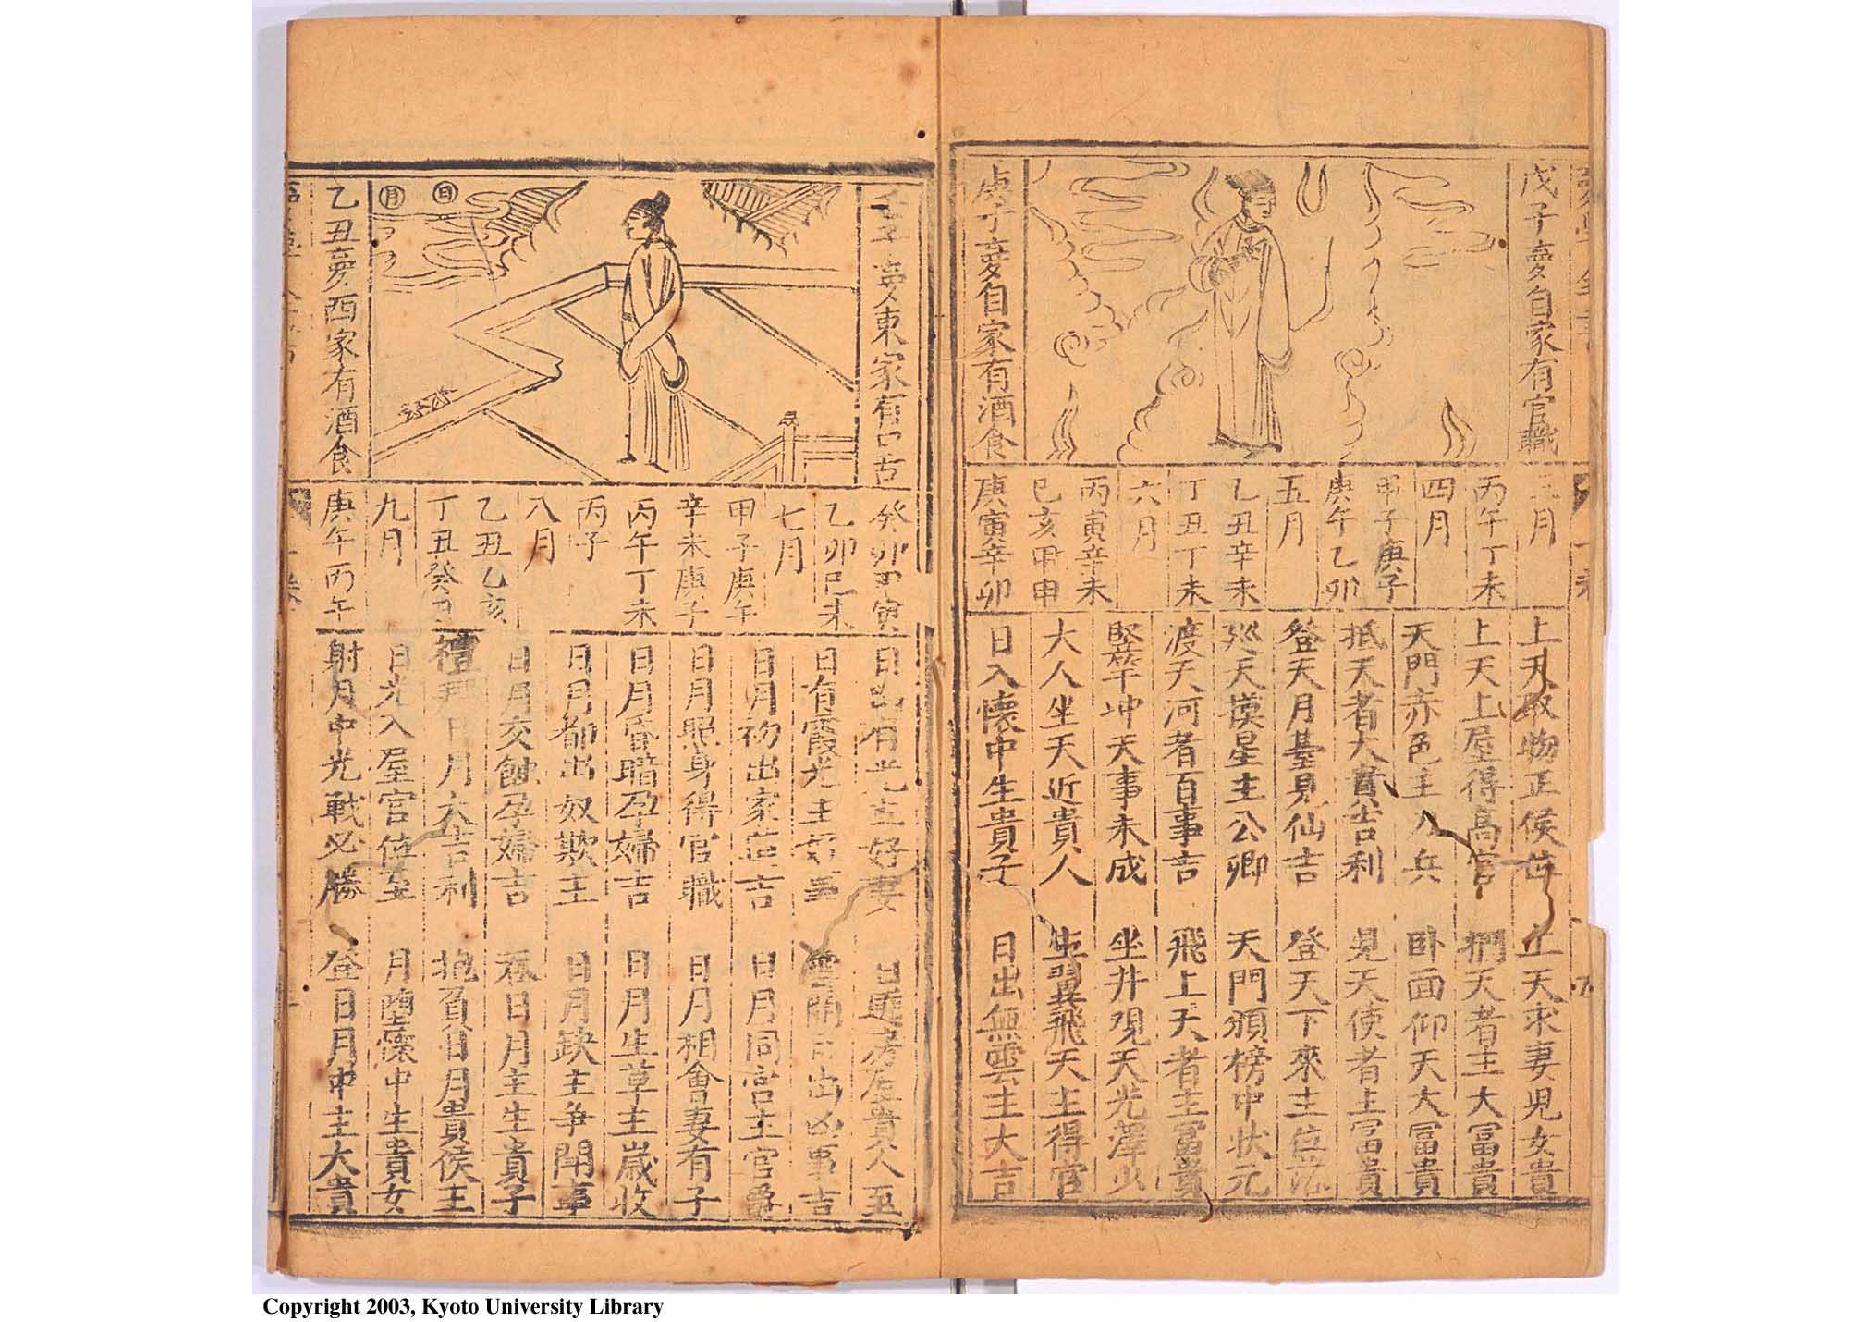 戊子夢自家有官職
庚子夢自家有酒食
三月
丙午丁未
四月
甲子庚子
庚午乙卯
五月
乙丑辛未
丁丑丁未
六月
丙寅辛未
己亥甲申
庚寅辛卯
上天取物正侯位
上天求妻児女貴
上天上屋得高官
捫天者主大冨貴
天門赤色主八兵
卧面仰天大冨貴
抵天者大吉利
見天使者主冨貴
登天月臺見仙吉
登天下來主位
巡天漢星主公卿
天門頒榜中状元
渡天河者百事吉
飛上天者主冨貴
竪竿冲天事未成
坐井現天光澤少
大人坐天近貴人
生翼飛天主得官
日入懷中生貴子
日出無雲主大吉
夢東家有口舌
乙丑夢西家有酒食
日
月
癸卯甲寅
乙卯己未
七月
甲子庚午
辛未庚子
丙午丁未
丙子
八月
乙丑乙亥
丁丑癸丑
九月
庚午丙午
日出有光主好妻
日 房屋貴人至
日有霞光主 事
雲開日出凶事吉
日月初出家 吉
日月同宮主官爵
日月照身得官職
日月相會妻有子
日月昏暗孕婦吉
日月生草主歳收
日月都出奴欺主
日月缺主争閗事
日月交蝕孕婦吉
吞日月主生貴子
禮拜日月大吉利
抱負日月貴侯王
日光入屋官位至
月墮懷中生貴女
射月中光戰必勝
登日月中主大貴
Copyright 2003, Kyoto University Library